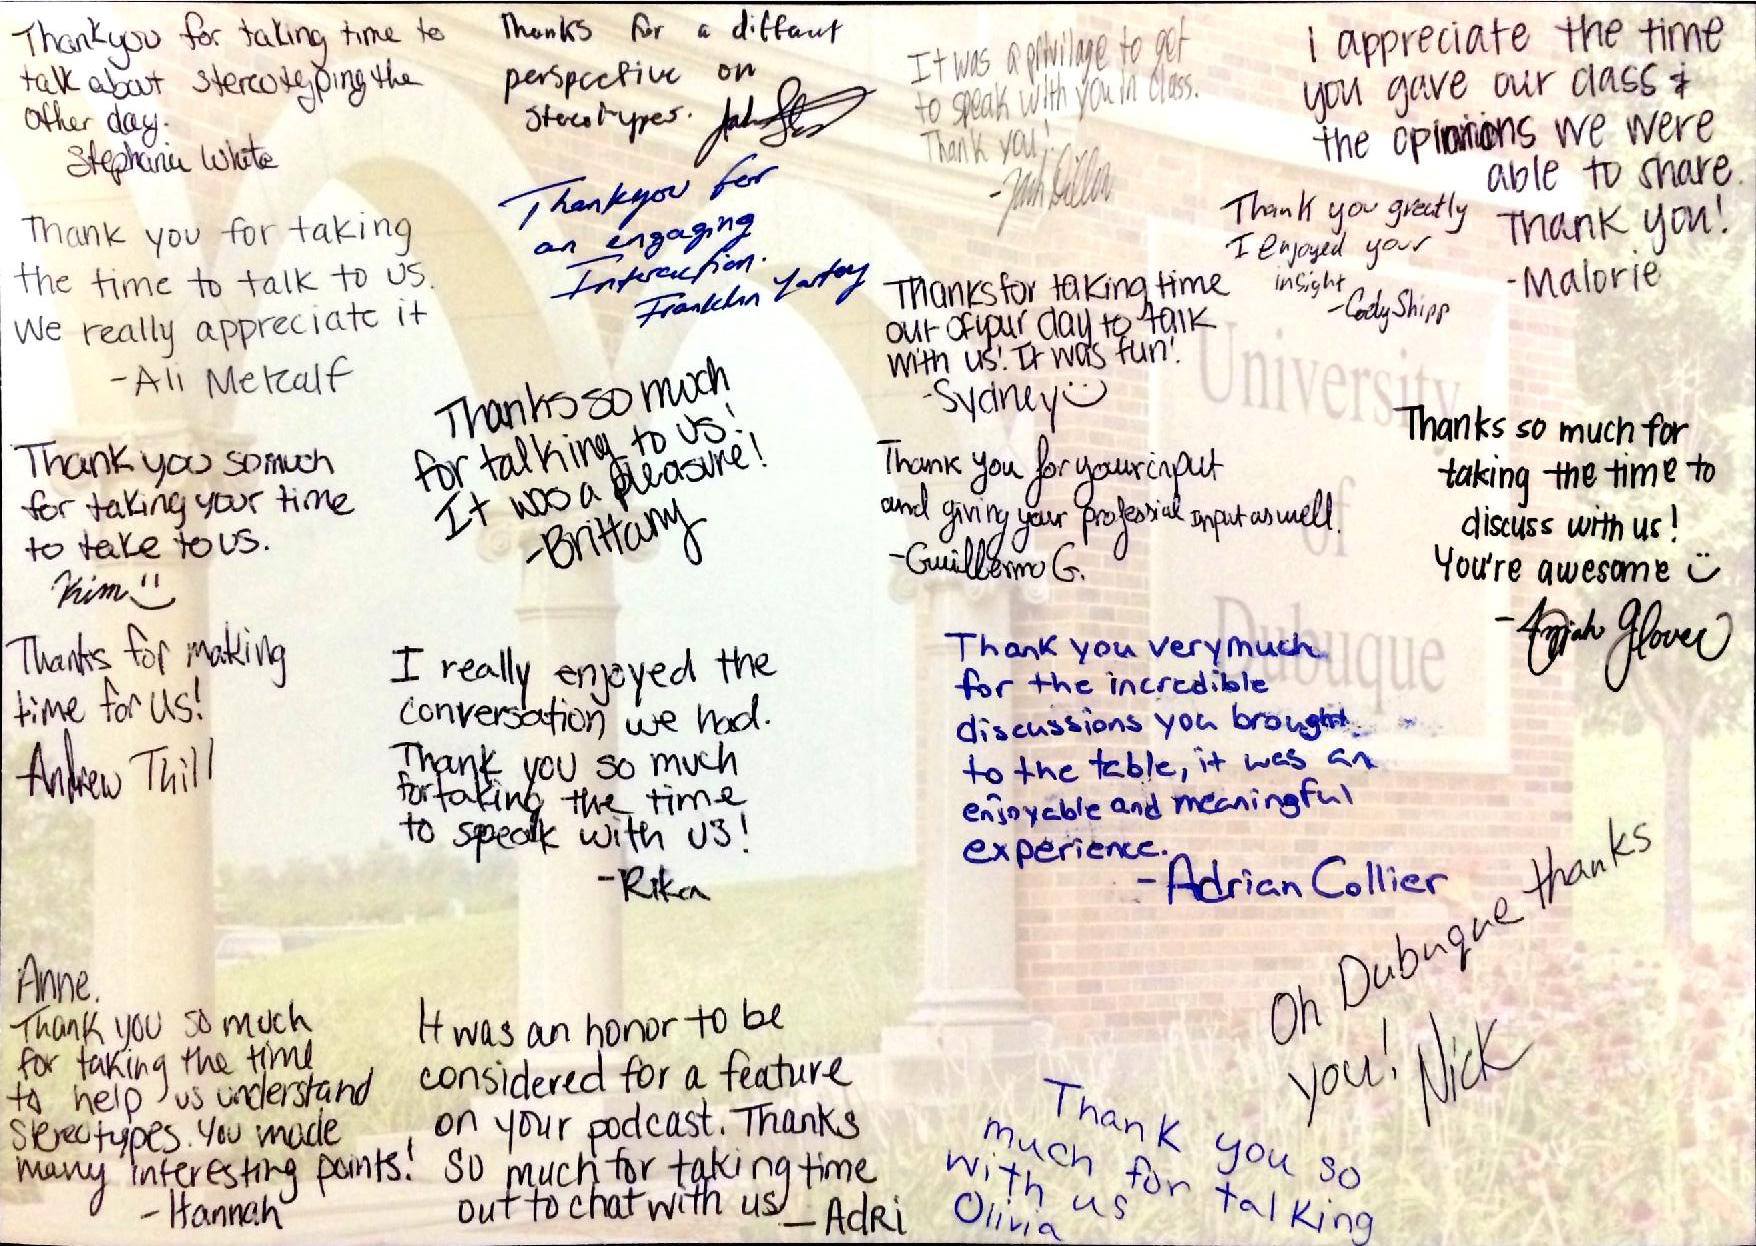 Thankyou for taking time to
talk about stercotyping the
other day.
Stephanie White
Thanks for a diffant
perspective on
stereotypes.
It was a privilage to get
to speak with you in class.
Thank you!
I appreciate the time
you gave our class &
the opinions we were
able to share.
Thank you!
-Malorie
Thank you for taking
the time to talk to us.
We really appreciate it
-Ali Metcalf
Thankyou for
an engaging
Interaction.
Franklin
Thank you greatly
I enjoyed your
insight
-Cody Shipp
Thanks for taking time
out of your day to talk
with us! It was fun!
-Sydney
University
of
Dubuque
Thank you so much
for taking your time
to take to us.
Kim
Thanks so much
for talking to us!
It was a pleasure!
-Brittany
Thank you for your input
and giving your professial input as well.
-Guillermo G.
Thanks so much for
taking the time to
discuss with us!
You're awesome
Glover
Thanks for making
time for us!
Andrew Thill
I really enjoyed the
conversation we had.
Thank you so much
for taking the time
to speak with us!
-Rika
Thank you very much
for the incredible
discussions you brought
to the table, it was an
enjoyable and meaningful
experience.
-Adrian Collier
Oh Dubuque thanks
you! Nick
Anne.
Thank you so much
for taking the time
to help us understand
stereotypes. You made
many interesting points!
-Hannah
It was an honor to be
considered for a feature
on your podcast. Thanks
so much for taking time
out to chat with us
-Adri
Thank you so
much for talking
with us
Olivia